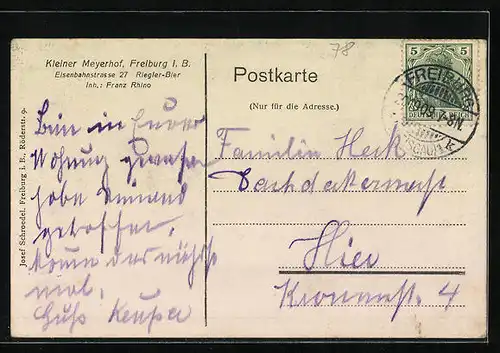 Kleiner Meyerhof, Freiburg I. B.
Eisenbahnstrasse 27 Riegler-Bier
Inh.: Franz Rhino
78
Postkarte
(Nur für die Adresse.)
5 5
DEUTSCHES REICH
FREIBURG
7-8N.
Josef Schroedel, Freiburg i. B., Röderstr. 9.
Bin in Eurer
Wohnung gewesen
habe Niemand
getroffen,
komme das nächste
mal.
Gruß
Familie Heck
Dachdeckermeist
Hier
Kronenstr. 4